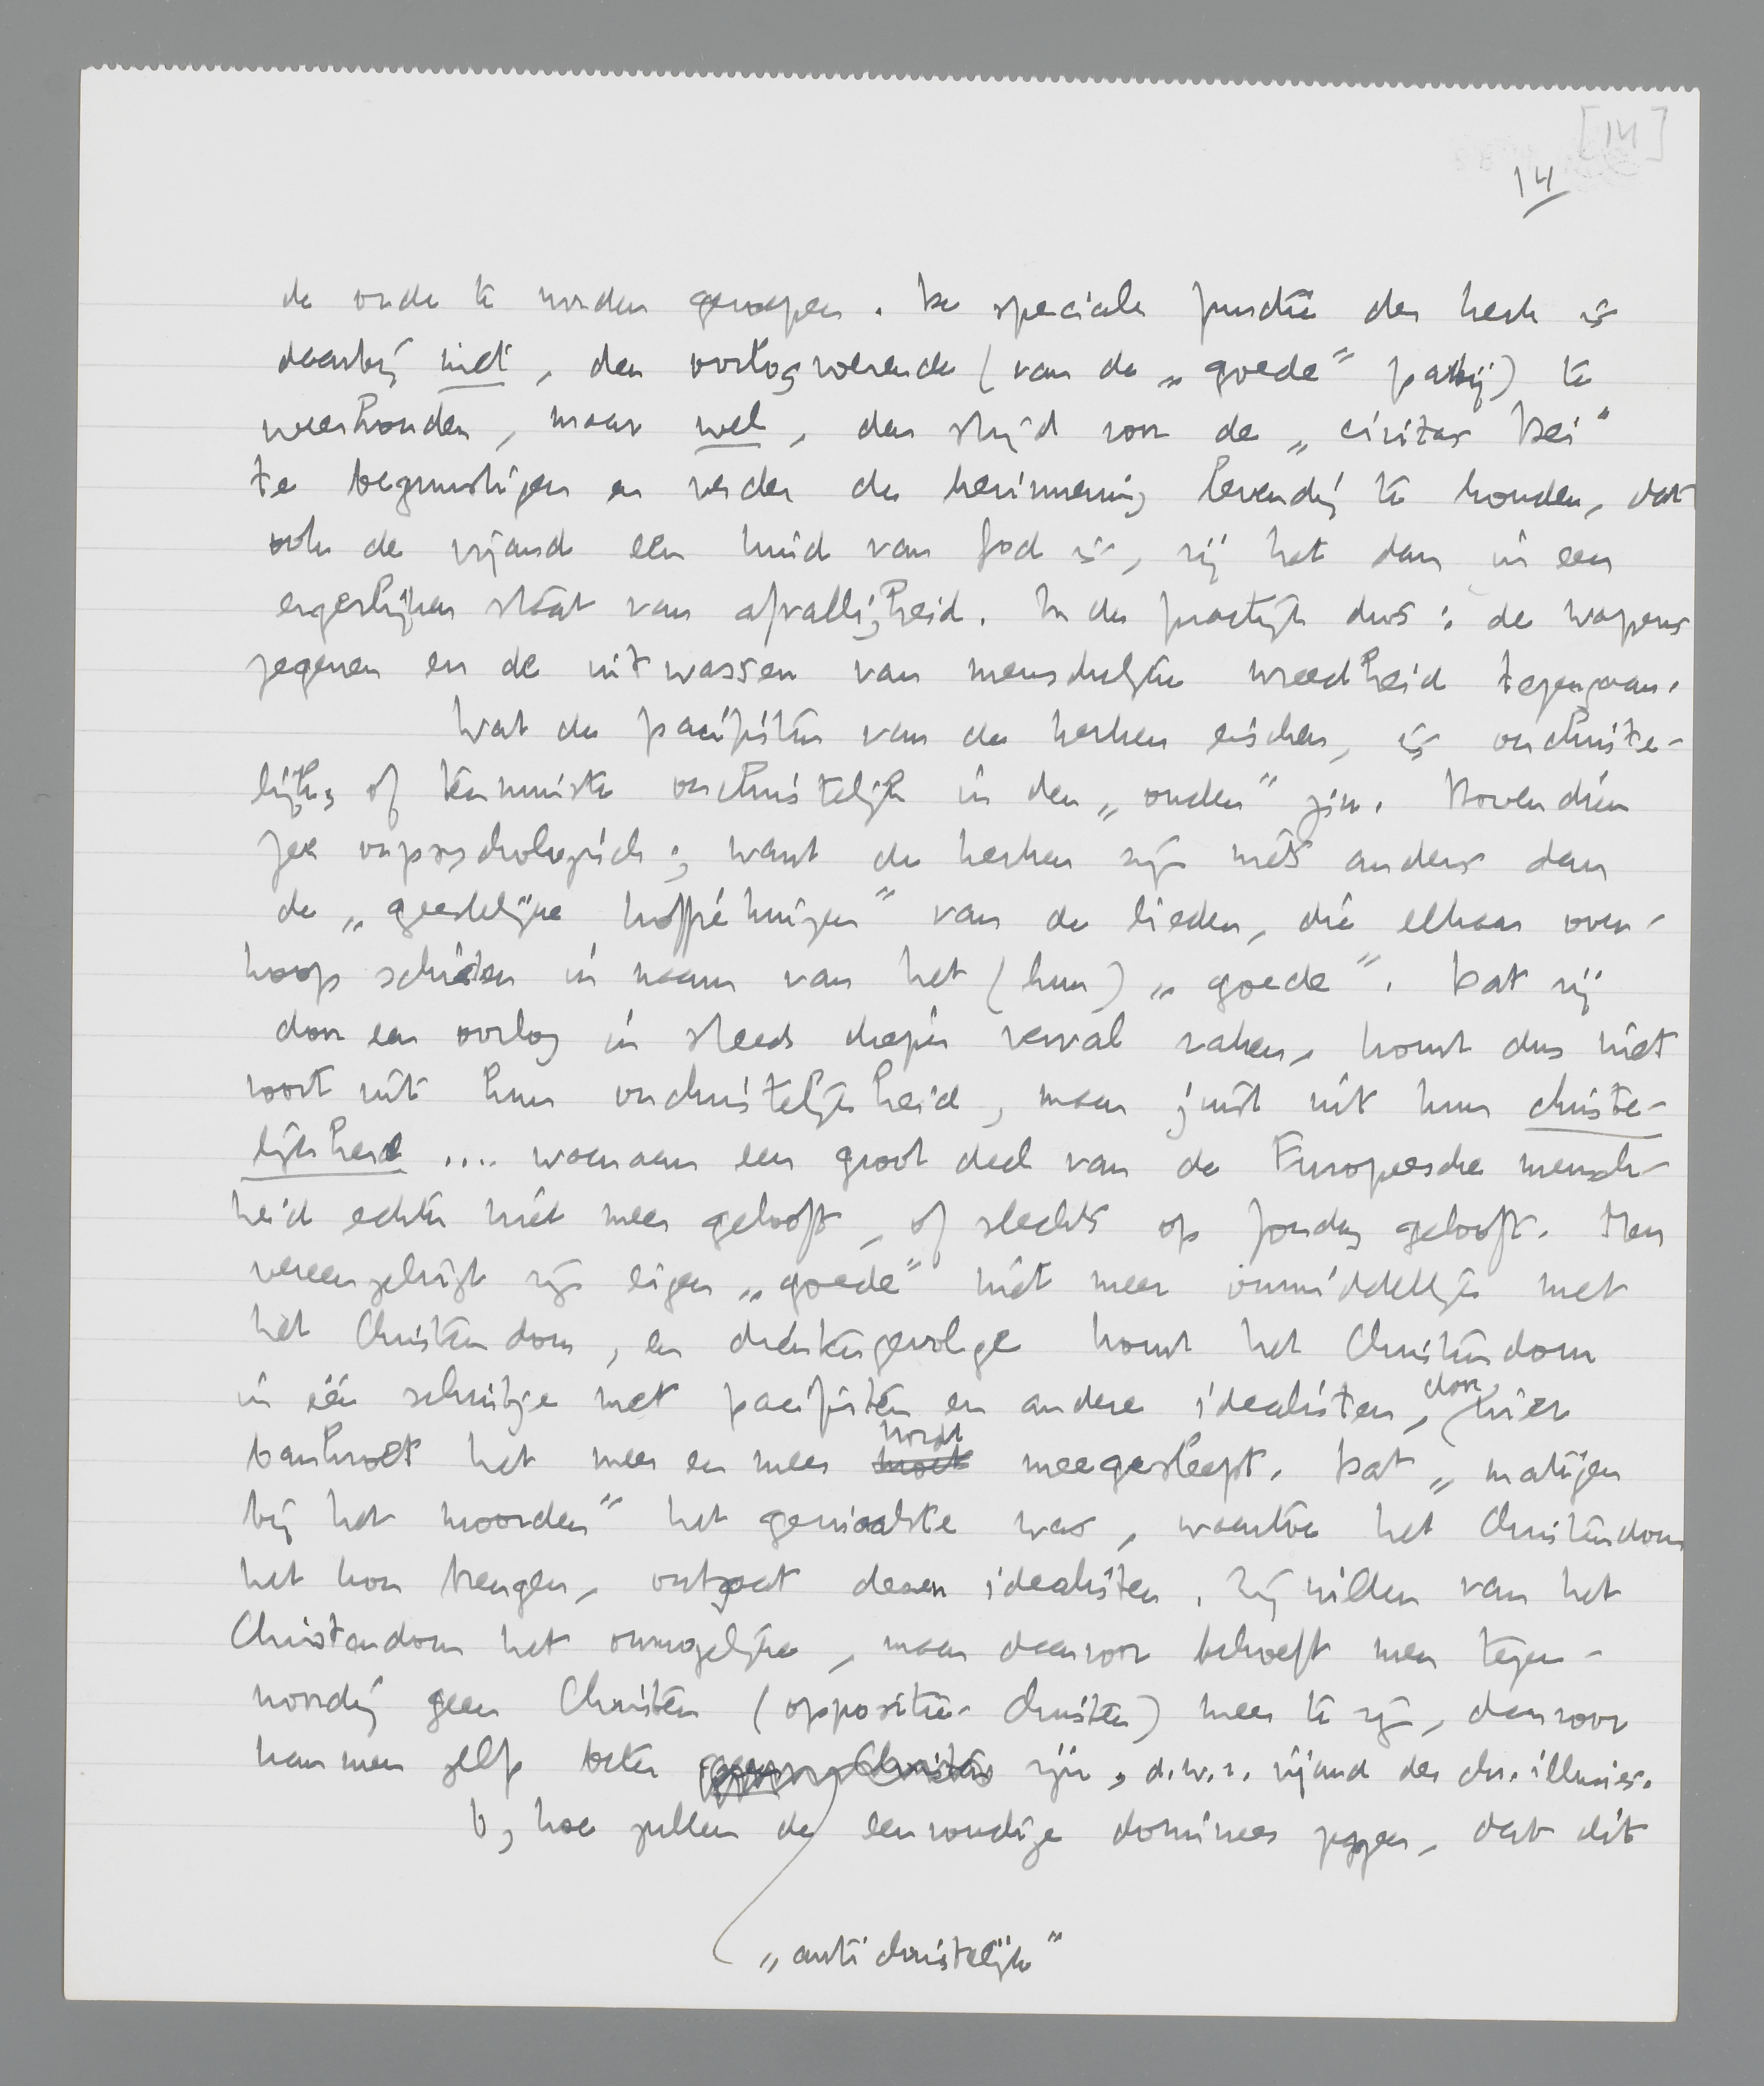 [14]
14
de orde te worden geroepen. De speciale functie der kerk is
daarbij niet, den oorlogvoerende (van de „goede” partij) te
weerhouden, maar wel, den strijd voor de „civitas Dei”
te begunstigen en verder de herinnering levendig te houden, dat
ook de vijand een kind van God is, zij het dan in een
ergerlijken staat van afvalligheid. In de practijk dus: de wapens
zegenen en de uitwassen van menschelijke wreedheid tegengaan.
Wat de pacifisten van de kerken eischen, is onchriste-
lijk, of tenminste onchristelijk in den „ouden” zin. Bovendien
zeer onpsychologisch; want de kerken zijn niets anders dan
de „geestelijke koffiehuizen” van de lieden, die elkaar over-
hoop schieten in naam van het (hun) „goede”. Dat zij
door een oorlog in steeds dieper verval raken, komt dus niet
voort uit hun onchristelijkheid, maar juist uit hun christe-
lijkheid .... waaraan een groot deel van de Europeesche mensch-
heid echter niet meer gelooft, of slechts op Zondag gelooft. Men
vereenzelvigt zijn eigen „goede” niet meer onmiddellijk met
het Christendom, en dientengevolge komt het Christendom
in één schuitje met pacifisten en andere idealisten, door wier
bankroet het meer en meer moet wordt meegesleept. Dat „matigen
bij het moorden” het geniaalste was, waartoe het Christendom
het kon brengen, ontgaat dezen idealisten. Zij willen van het
Christendom het onmogelijke, maar daarvoor behoeft men tegen-
woordig geen Christen (oppositie-Christen) meer te zijn, daarvoor
kan men zelfs beter geen Christen zijn, d.w.z. vijand der chr. illusies.
O, hoe zullen de eenvoudige dominees zeggen, dat dit
„antichristelijk”